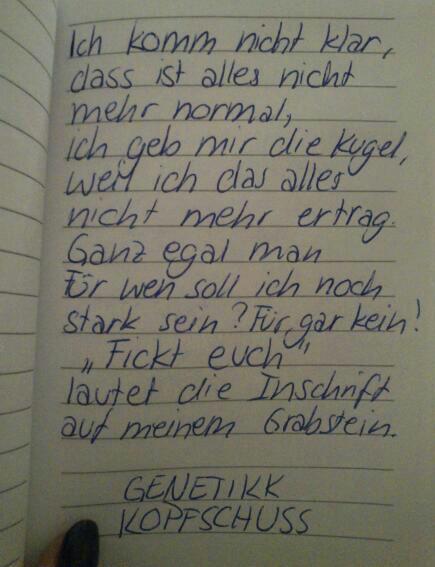 Ich komm nicht klar,
dass ist alles nicht
mehr normal,
ich geb mir die Kugel,
weil ich das alles
nicht mehr ertrag.
Ganz egal man
für wen soll ich noch
stark sein? Für gar kein!
„Fickt euch"
lautet die Inschrift
auf meinem Grabstein.
GENETIKK
KOPFSCHUSS